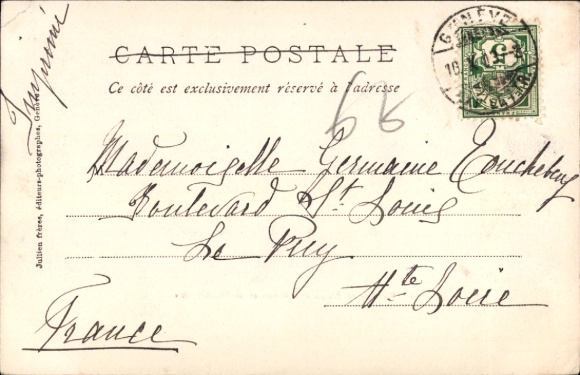 Imprimé
CARTE POSTALE
Ce côté est exclusivement réservé à l'adresse
GENÈVE
5
Mademoiselle Germaine
Boulevard St Louis
Le Puy
Hte Loire
France
Jullien frères, éditeurs-photographes, Genève